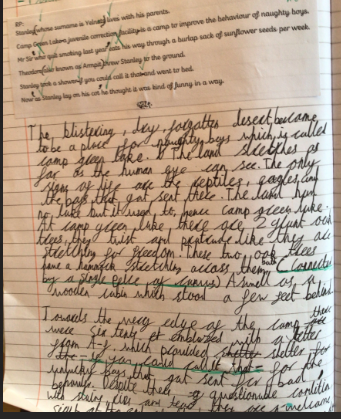 RP:
Stanley (whose surname is Yelnats) lives with his parents.
Camp Green Lake (a juvenile correction facility) is a camp to improve the behaviour of naughty boys.
Mr Sir who quit smoking last year eats his way through a burlap sack of sunflower seeds per week.
Theodore (also known as Armpit) threw Stanley to the ground.
Stanley took a shower (if you could call it that) and went to bed.
Now as Stanley lay on his cot he thought it was kind of funny in a way.
The blistering, dry, forgotten desert, became
to be a place for naughty boys which is called
camp green lake. The land stretches as
far as the human eye can see. The only
signs of life are the reptiles, eagles, and
the boys that got sent there. The land has
no lake but it used to, hence camp green lake.
At camp green lake there are 2 giant oak
trees, they twist and protrude like they are
stretching for freedom. These two oak trees
have a hammock stretching across them (connected
by a single piece of canvas) As well as a
wooden cabin which stood a few feet behind
Towards the very edge of the camp there
were six tents embolzed with a letter
from A-F which provided shelter
- if you could call it that - for the
unlucky boys that got sent for bad
behaviour. Despite the questionable condition